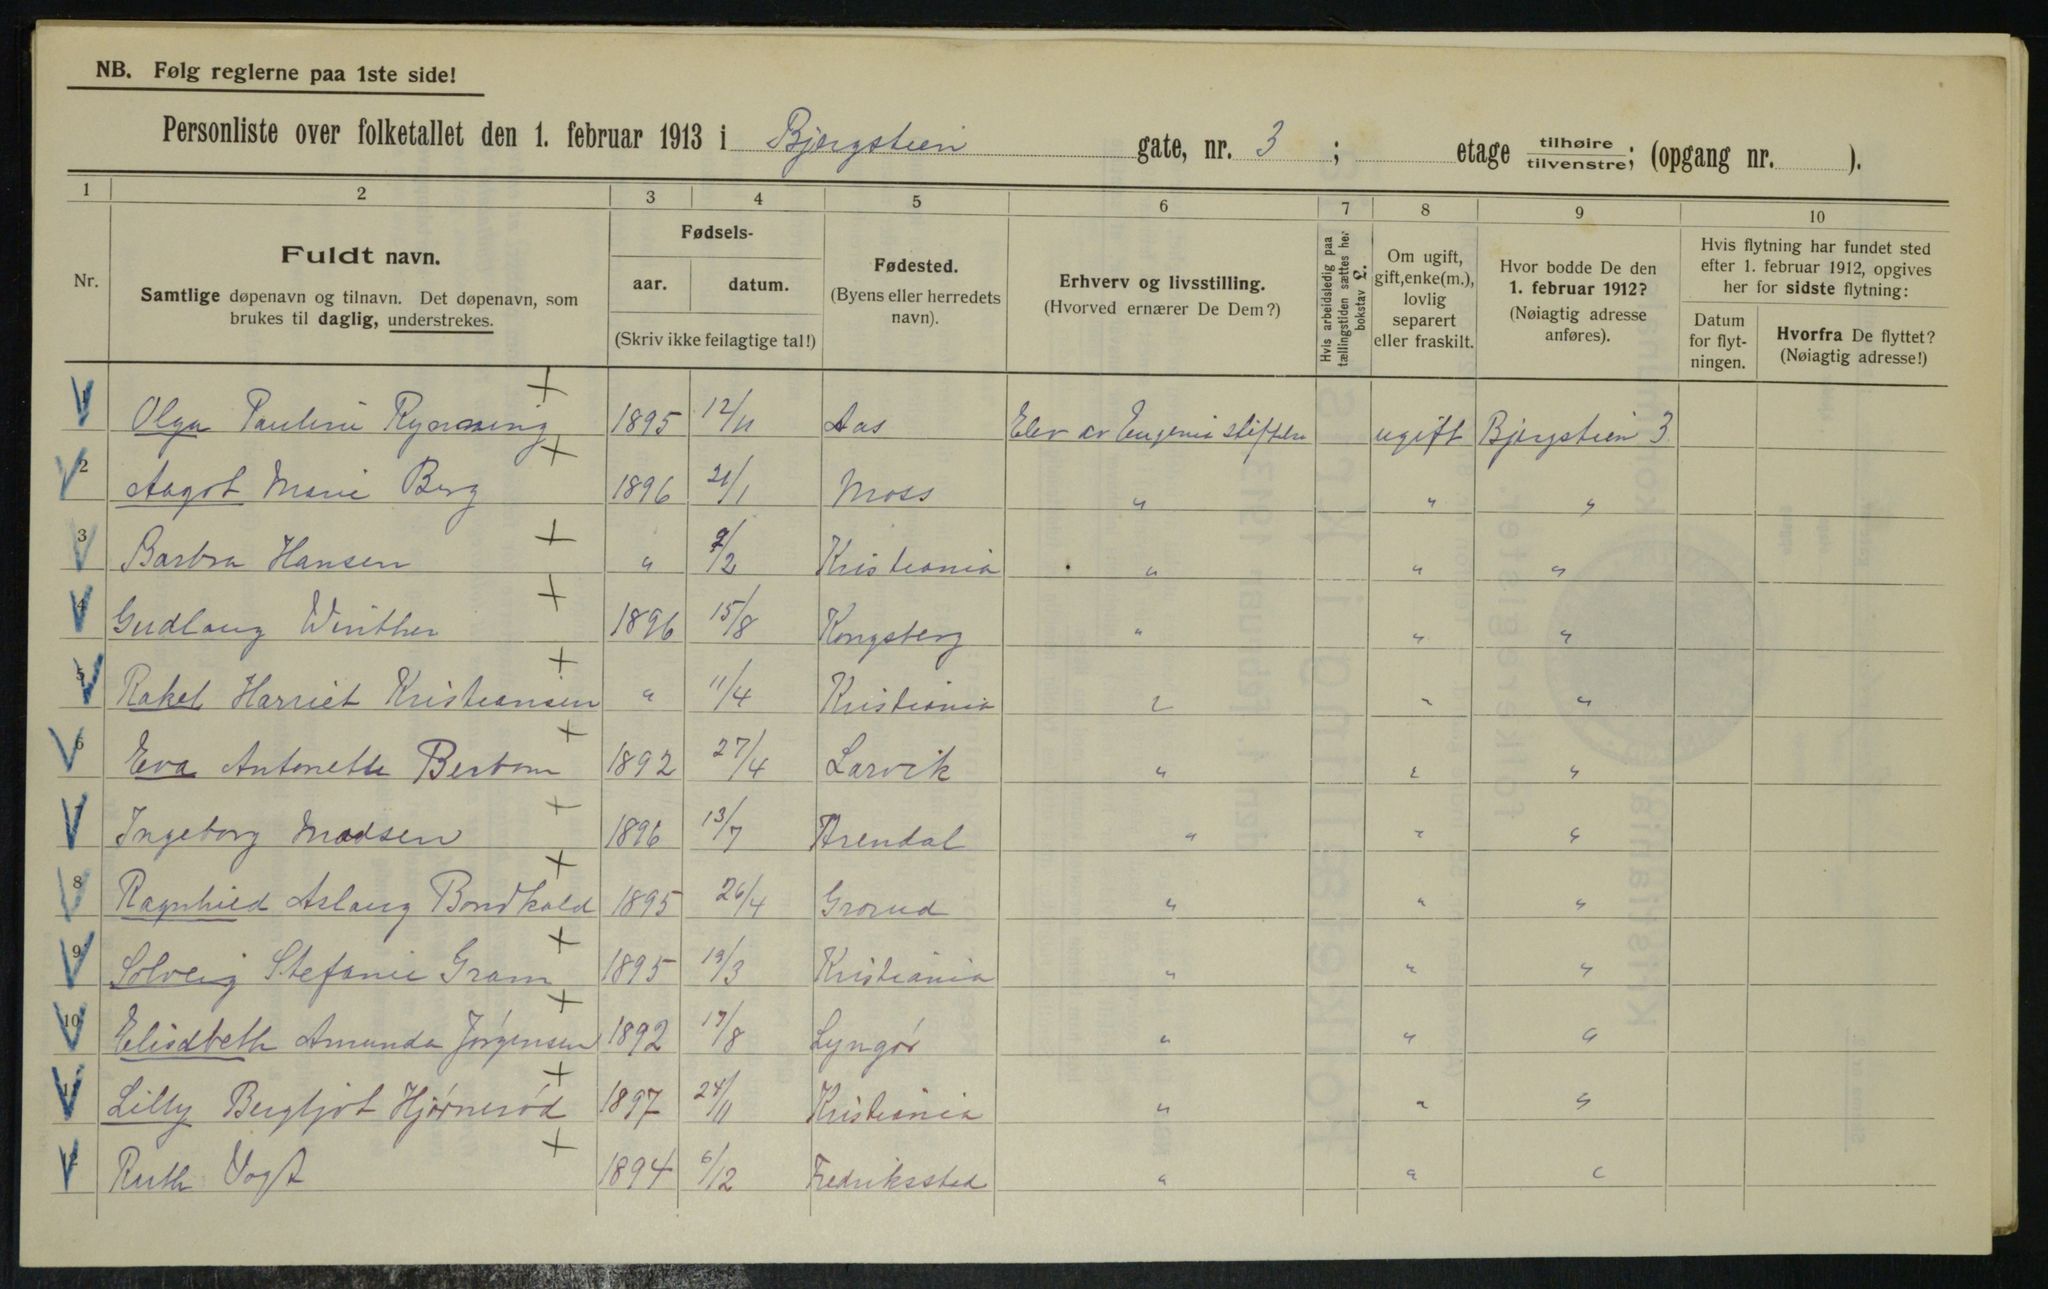 NB. Følg reglerne paa 1ste side!
Personliste over folketallet den 1. februar 1913 i Bjergstien gate, nr. 3 ; etage tilhøire tilvenstre; (opgang nr. ).
1 2 3 4 5 6 7 8 9 10
Nr.
Fuldt navn.
Samtlige døpenavn og tilnavn. Det døpenavn, som
brukes til daglig, understrekes.
Fødsels-
aar. datum.
(Skriv ikke feilagtige tal!)
Fødested.
(Byens eller herredets
navn).
Erhverv og livsstilling.
(Hvorved ernærer De Dem?)
Hvis arbeidsledig paa
tællingstiden sættes her
bokstav L.
Om ugift,
gift, enke(m.),
lovlig
separert
eller fraskilt.
Hvor bodde De den
1. februar 1912?
(Nøiagtig adresse
anføres).
Hvis flytning har fundet sted
efter 1. februar 1912, opgives
her for sidste flytning:
Datum
for flyt-
ningen.
Hvorfra De flyttet?
(Nøiagtig adresse!)
1 Olga Pauline 1895 12/11 Aas Elev av Eugenia stiftelse ugift Bjergstien 3
2 Aagot Marie Berg 1896 21/1 Moss " " "
3 Barbra Hansen " /2 Kristiania " " "
4 Gudlaug Winther 1896 15/8 Kongsberg " " "
5 Rakel Harriet Kristiansen " 11/4 Kristiania " " "
6 Eva Antonette Berbom 1892 27/4 Larvik " " "
7 Ingeborg Madsen 1896 13/7 Arendal " " "
8 Ragnhild Aslaug Bondkald 1895 26/4 Grorud " " "
9 Solveig Stefanie Gram 1895 19/3 Kristiania " " "
10 Elisabeth Amanda Jørgensen 1892 17/8 Lyngør " " "
11 Lilly Bergljot Hjørnerød 1897 24/11 Kristiania " " "
12 Ruth Vogt 1894 6/12 Fredriksstad " " "